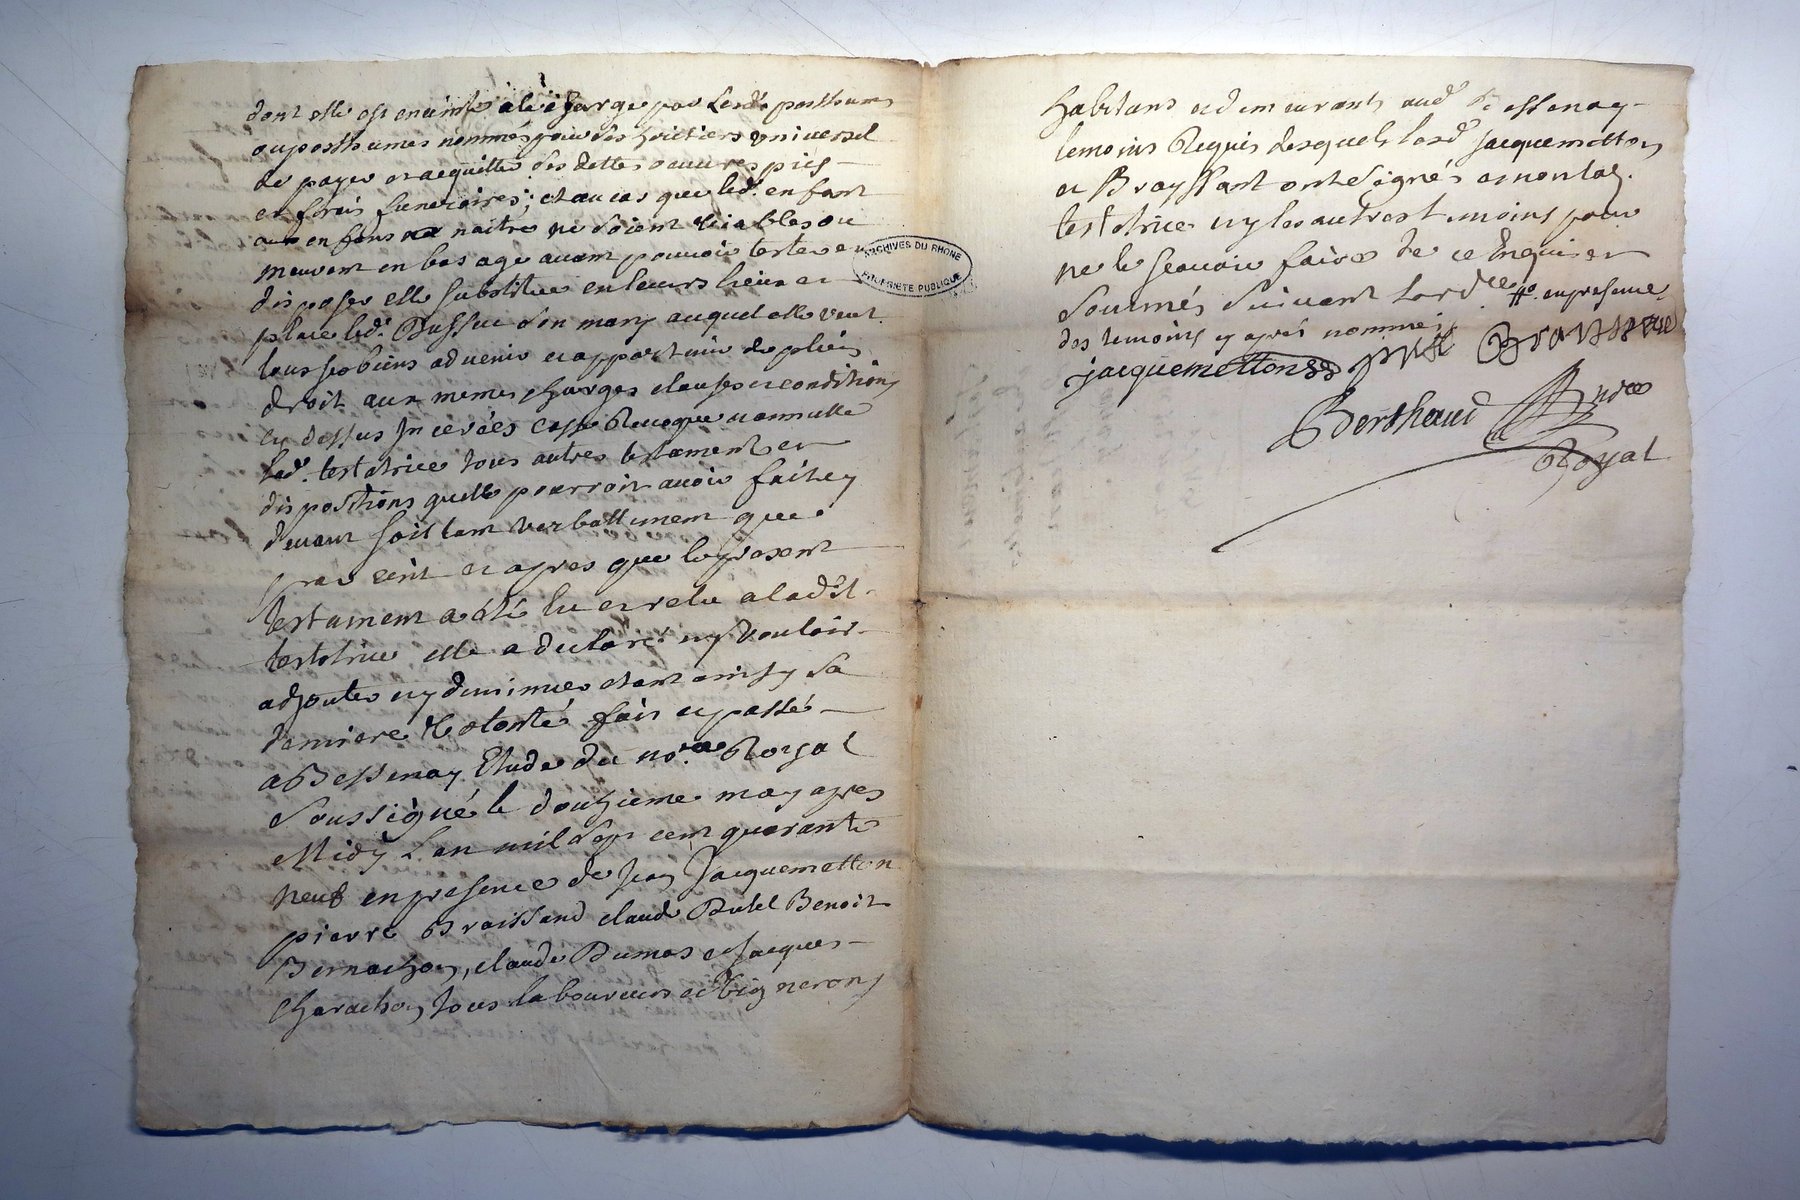 dont elle est enceinte a la charge par lesd. posthumes
ou posthumes nommés pour ses heritiers universel
de payer et acquitter ses dettes oeuvres pies
et frais funeraires; et au cas que led. enfant
ou enfans a naitre ne soient viables ou
meurent en bas age avant pouvoir tester et
disposer elle substitue en leurs lieu et
place led. Dussuc son mary auquel elle veut
tous ses biens advenir et appartenir de plein
droit aux memes charges clauses et conditions
cy dessus inserées casse revoque et annulle
lad. testatrice tous autres testament et
dispositions quelle pourroit avoir fait cy
devant soit tant verballement que
par ecrit et apres que le present
testament a été lu et relu a ladit.
testatrice elle a declaré ny vouloir
adjouter ny diminuer etant ainsy sa
derniere volonté fait et passé
a Bessenay Etude du no.re Royal
soussigné le douzieme may apres
Midy l'an mil sept cent quarante
neuf en presence de Jean Jacquemetton
pierre Braissand claude Dutel Benoit
Bernachon, claude Dumas et Jacques
Charachon tous laboureurs et vignerons
ARCHIVES DU RHONE
PROPRIETE PUBLIQUE
habitans et demeurants aud. Bessenay
temoins Requis desquels lesd. Jacquemetton
et Brayssant ont signés a non lad.
testatrice ny les autres temoins pour
ne le sçavoir faire de ce Enquis et
sommés suivant lord.ce ffe. en presence
des temoins cy aprés nommés
jacquemetton
Berthaud
Royal